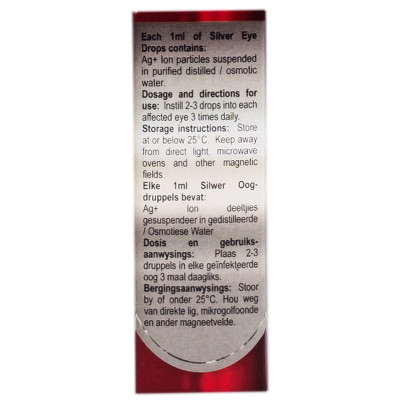 Each 1ml of Silver Eye
Drops contains:
Ag+ Ion particles suspended
in purified distilled / osmotic
water.
Dosage and directions for
use: Instill 2-3 drops into each
affected eye 3 times daily.
Storage instructions: Store
at or below 25°C. Keep away
from direct light, microwave
ovens and other magnetic
fields
Elke 1ml Silwer Oog-
druppels bevat:
Ag+ Ion deeltjies
gesuspendeer in gedistilleerde
/ Osmotiese Water
Dosis en gebruiks-
aanwysings: Plaas 2-3
druppels in elke geïnfekteerde
oog 3 maal daagliks.
Bergingsaanwysings: Stoor
by of onder 25°C. Hou weg
van direkte lig, mikrogolfoonde
en ander magneetvelde.